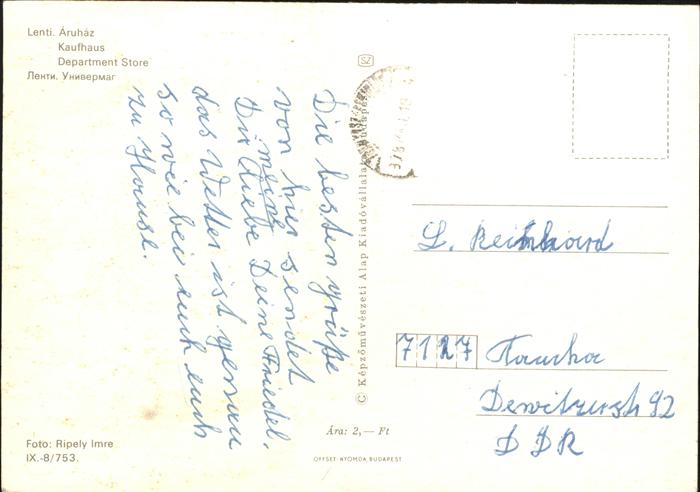 Lenti. Áruház
Kaufhaus
Department Store
Ленти. Универмаг
SZ
Die besten grüße
von hier sendet
meine
Dir Liebe Deine Friedel.
das Wetter ist genau
so wie bei euch auch
zu Hause.
© Képzőművészeti Alap Kiadóvállalata, Budapest
L. Reinhard
7127 Taucha
Dewitzerstr 92
DDR
Foto: Ripely Imre
IX.-8/753.
Ára: 2,— Ft
OFFSET-NYOMDA, BUDAPEST